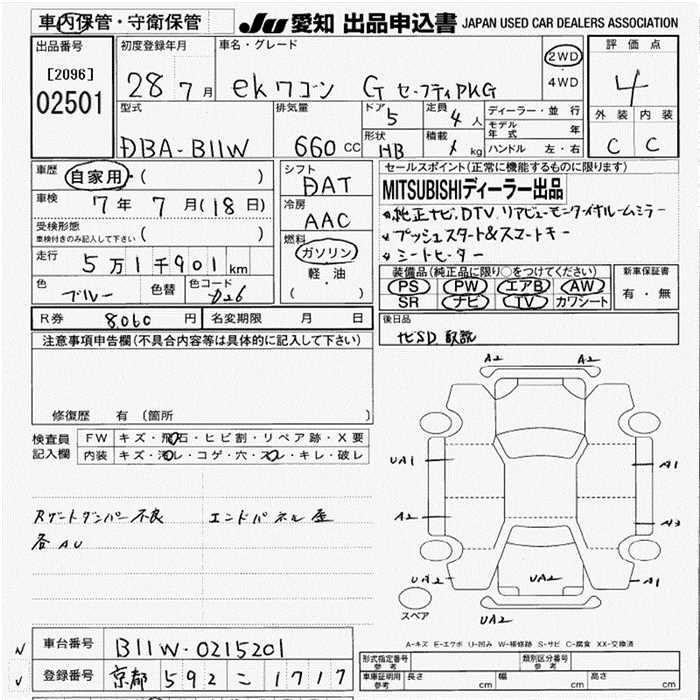 車内保管・守衛保管
JU 愛知 出品申込書 JAPAN USED CAR DEALERS ASSOCIATION
出品番号
[2096]
02501
初度登録年月
28 7 月
車名・グレード
ekワゴン G セーフティPKG
2WD
4WD
評価点
4
外装 内装
C C
型式
DBA-B11W
排気量
660 cc
ドア
5
定員
4 人
形状
HB
積載
kg
ディーラー・並行
モデル年式 年
ハンドル 左・右
車歴
自家用・( )
車検
7 年 7 月 (18 日)
受検形態
車検付きのみ記入して下さい ( )
走行
5 万 1 千 901 km
色
ブルー
色替
色コード
D26
シフト
DAT
冷房
AAC
燃料
ガソリン
軽・油
( )
セールスポイント(正常に機能するものに限ります)
MITSUBISHIディーラー出品
純正ナビ、DTV、リアビューモニタ付ルームミラー
プッシュスタート&スマートキー
シートヒーター
装備品(純正品に限り○をつけてください)
PS PW エアB AW
SR ナビ TV カワシート
新車保証書
有・無
R券 8,060 円
名変期限 月 日
後日品
ナビSD 取説
注意事項申告欄(不具合内容等は具体的に記入して下さい)
修復歴 有 (箇所 )
検査員
記入欄
FW キズ・飛石・ヒビ割・リペア跡・X要
内装 キズ・汚レ・コゲ・穴・スレ・キレ・破レ
Rゲートダンパー不良 エンドパネル歪
各AU
A2 A2
UA1 A1
A2 A3
UA2 UA2 A1
UA2
スペア
A-キズ E-エクボ U-凹み W-補修跡 S-サビ C-腐食 XX-交換済
車台番号 B11W-0215201
登録番号 京都 592 こ 1717
形式指定番号
参考
類別区分番号
参考
車庫証明用
参考
長さ cm
幅 cm
高さ cm